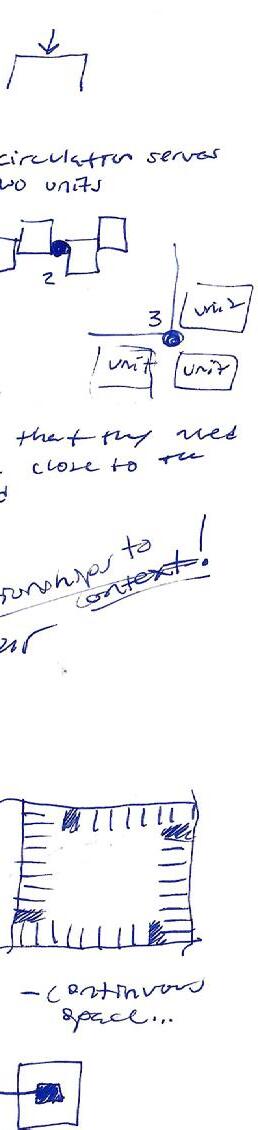 circulation serves
wo units
2
3
unit
unit
unit
that they need
close to the
d
ionships to
context!
our
- continuous
space...